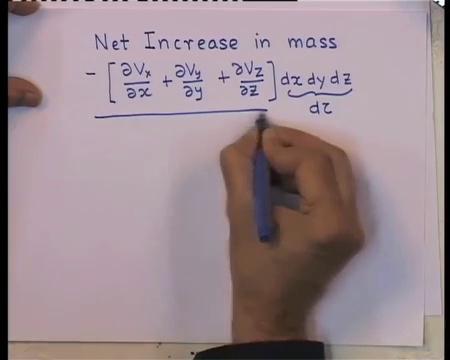 Net Increase in mass
- [ ∂Vx/∂x + ∂Vy/∂y + ∂Vz/∂z ] dx dy dz
dτ